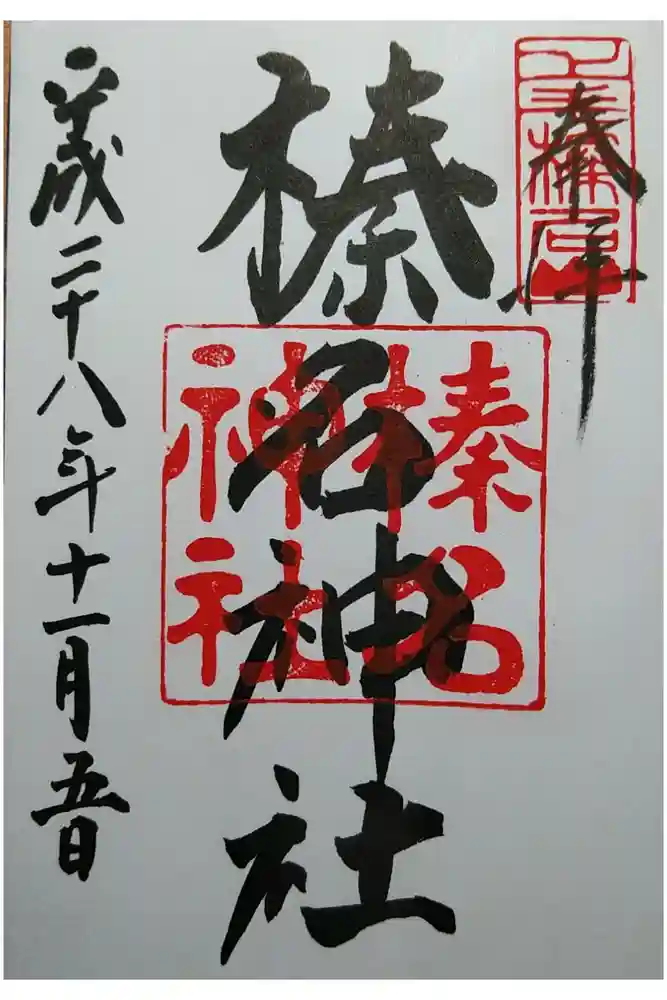 奉拝
榛名神社
榛名神社
平成二十八年十一月五日